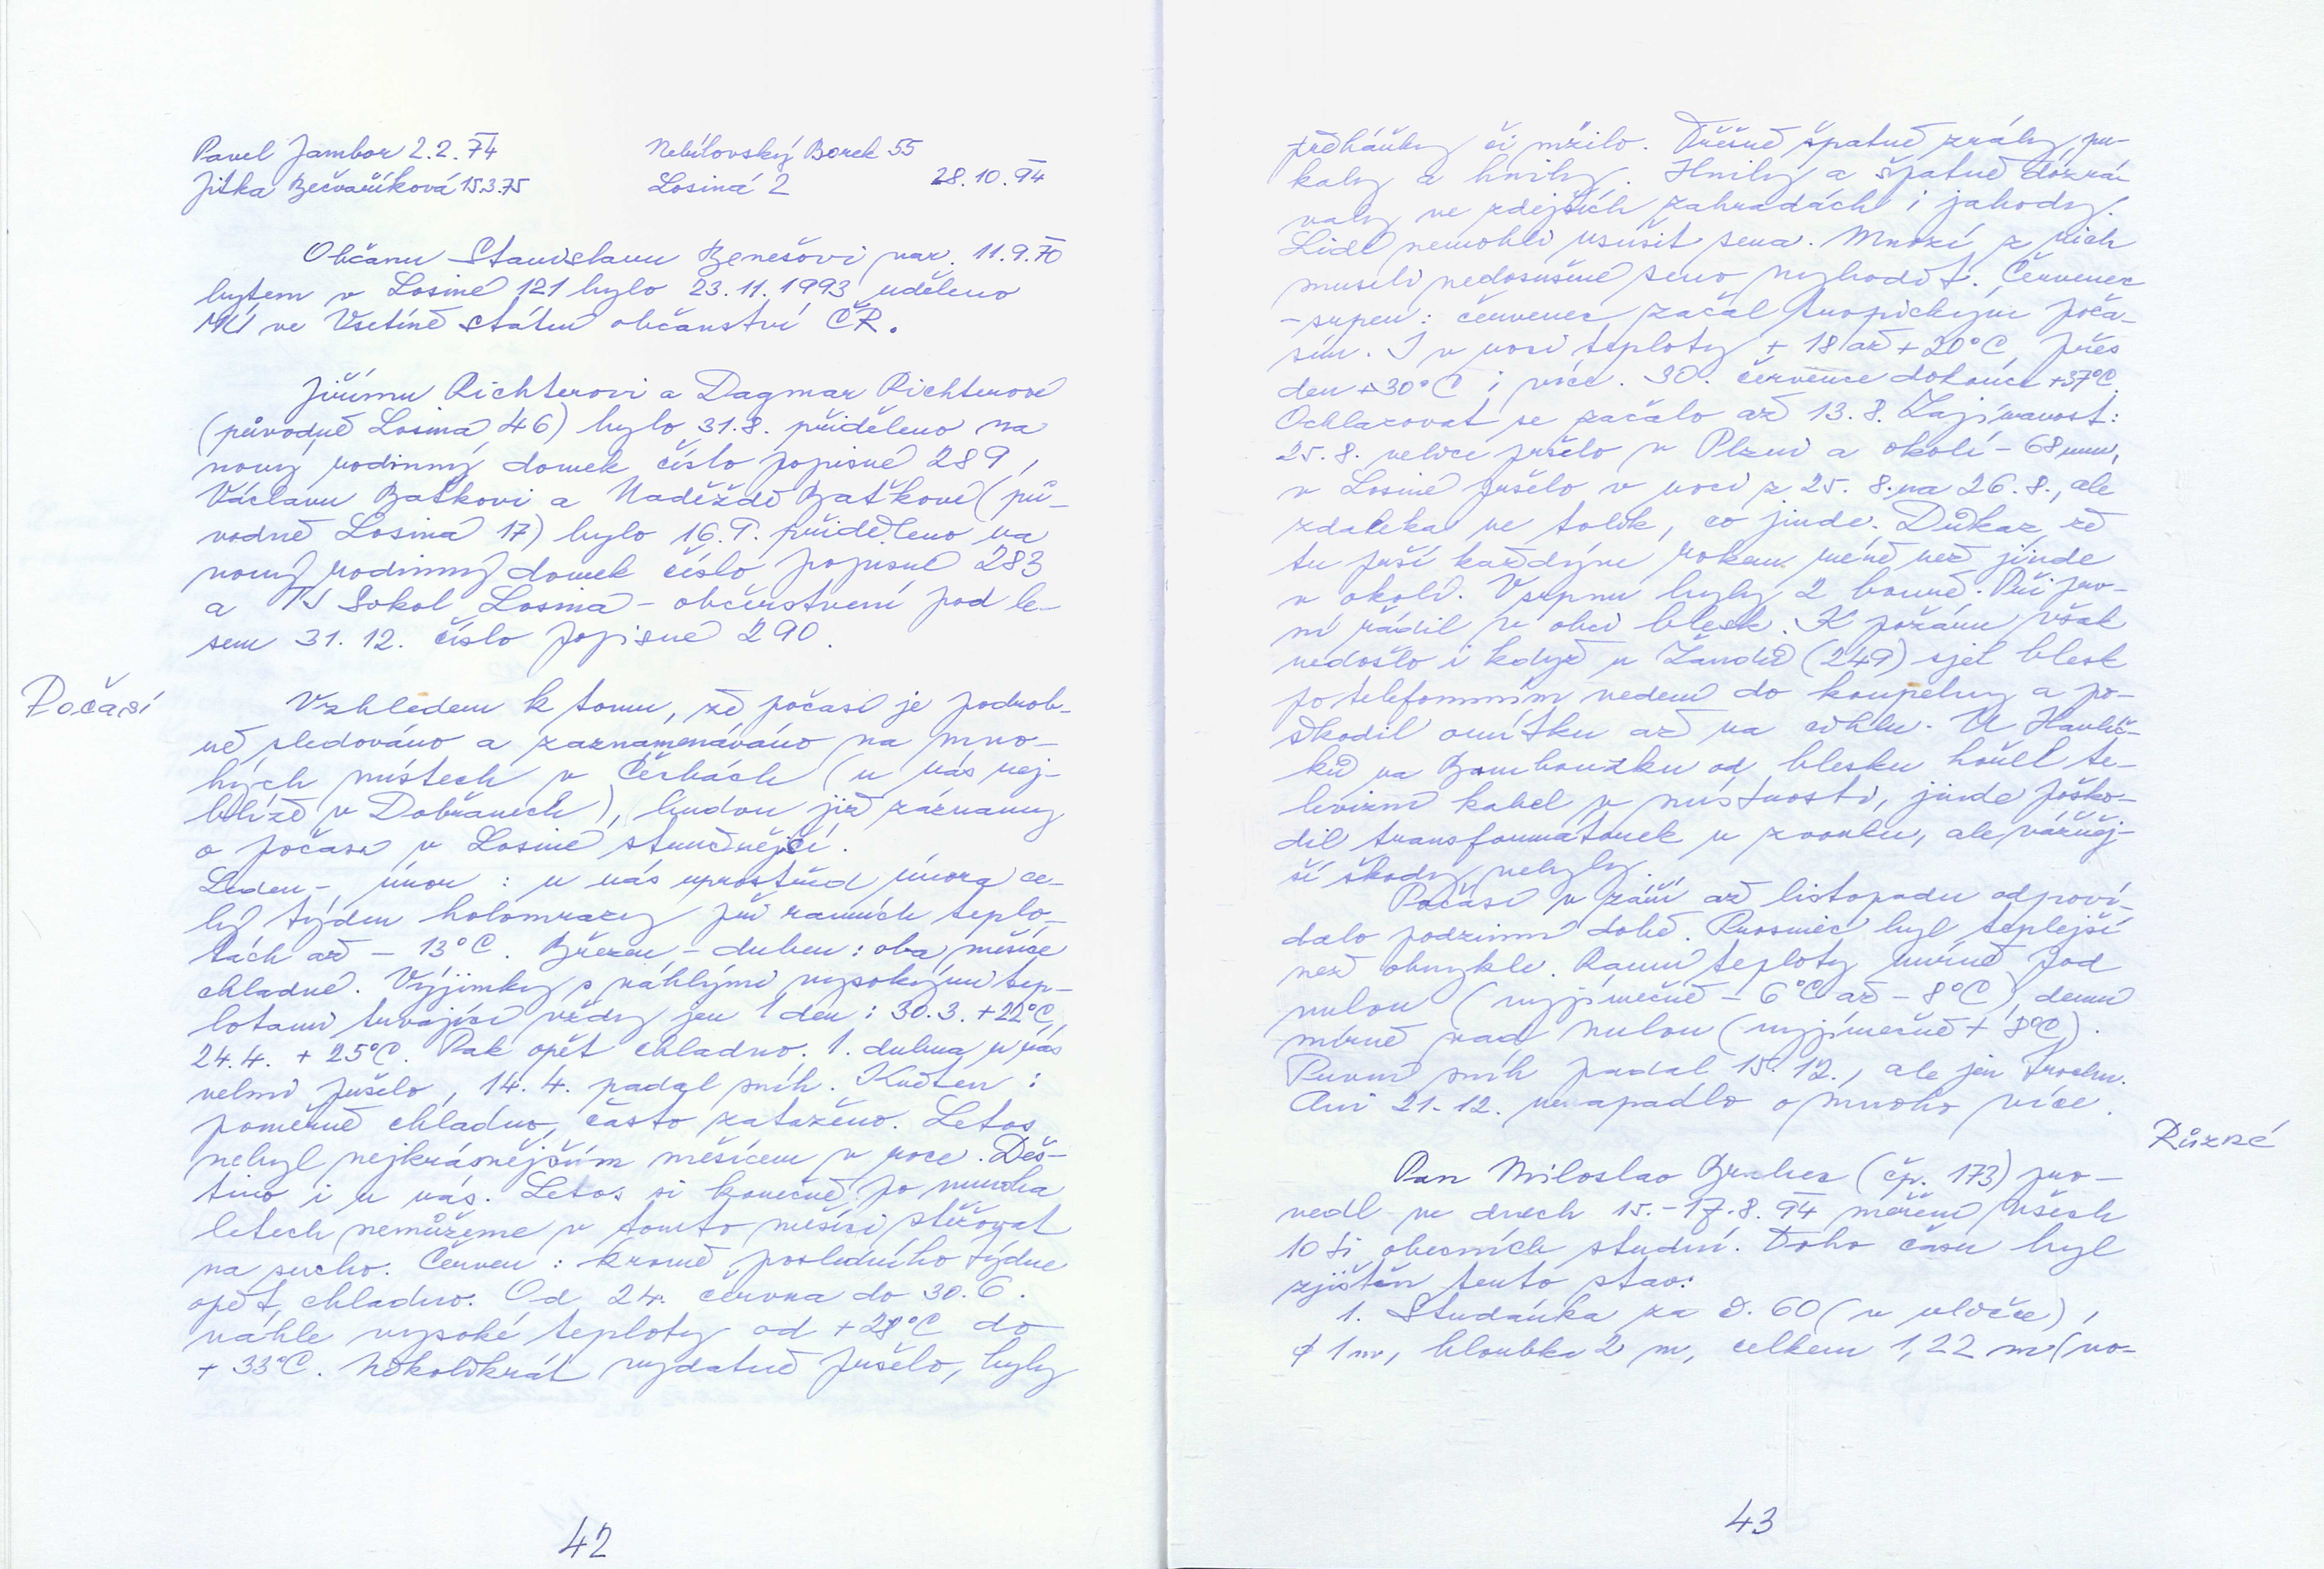 Pavel Jambor 2.2.74 Nebílovský Borek 55
Jitka Bečvaříková 15.3.75 Losiná 2 28.10.94
Občanu Stanislavu Benešovi nar. 11.9.70
bytem v Losiné 121 bylo 23.11.1993 uděleno
MÚ ve Vsetíně státní občanství ČR.
Jiřímu Richterovi a Dagmar Richterové
(původně Losiná 46) bylo 31.8. přiděleno na
nový rodinný domek číslo popisné 289,
Václavu Baťkovi a Naděždě Baťkové (pů-
vodně Losiná 17) bylo 16.9. přiděleno na
nový rodinný domek číslo popisné 283
a TJ Sokol Losiná - občerstvení pod le-
sem 31.12. číslo popisné 290.
Počasí
Vzhledem k tomu, že počasí je podrob-
ně sledováno a zaznamenáváno na mno-
hých místech v Čechách (u nás nej-
blíže v Dobřanech), budou již záznamy
o počasí v Losiné stručnější.
Leden - únor : u nás uprostřed února ce-
lý týden holomrazy při ranních teplo-
tách až - 13°C. Březen - duben : oba měsíce
chladné. Výjimky s náhlými vysokými tep-
lotami trvající vždy jen 1 den : 30.3. +22°C,
24.4. + 25°C. Pak opět chladno. 1. dubna u nás
velmi pršelo, 14.4. padal sníh. Květen :
poměrně chladno, často zataženo. Letos
nebyl nejkrásnějším měsícem v roce. Deš-
tivo i u nás. Letos si konečně po mnoha
letech nemůžeme v tomto měsíci stěžovat
na sucho. Červen : kromě posledního týdne
opět chladno. Od 24. června do 30.6.
náhle vysoké teploty od +28°C do
+ 33°C. Několikrát vydatně pršelo, byly
42
přeháňky či mžilo. Třešně špatně zrály, pu-
kaly a hnily. Hnily a špatně dozrá-
valy ve zdejších zahradách i jahody.
Lidé nemohli usušit sena. Mnozí z nich
museli nedosušené seno vyhodit. Červenec
- srpen : červenec začal tropickým poča-
sím. I v noci teploty + 18 až + 20°C, přes
den +30°C i více. 30. července dokonce +37°C.
Ochlazovat se začalo až 13.8. Zajímavost:
25.8. velice pršelo v Plzni a okolí - 68 mm,
v Losiné pršelo v noci z 25.8. na 26.8., ale
zdaleka ne tolik, co jinde. Důkaz, že
tu prší každým rokem méně než jinde
v okolí. V srpnu byly 2 bouře. Při prv-
ní řádil v obci blesk. K požáru však
nedošlo i když u Žandů (249) sjel blesk
po telefonním vedení do koupelny a po-
škodil omítku až na cihlu. U Havlíč-
ků na Bambouzku od blesku hořel te-
levizní kabel v místnosti, jinde poško-
dil transformátorek u zvonku, ale vážněj-
ší škody nebyly.
Počasí v září až listopadu odpoví-
dalo podzimní době. Prosinec byl teplejší
než obvykle. Ranní teploty mírně pod
nulou (výjimečně - 6°C až - 8°C), denní
mírně nad nulou (výjimečně + 8°C).
První sníh padal 15.12., ale jen trochu.
Ani 21.12. nenapadlo o mnoho více.
Různé
Pan Miloslav (čp. 173) pro-
vedl ve dnech 15.-17.8.94 měření všech
10 ti obecních studní. Toho času byl
zjištěn tento stav:
1. Studánka za č. 60 (v uličce),
ϕ 1 m, hloubka 2 m, celkem 1,22 m (vo-
43